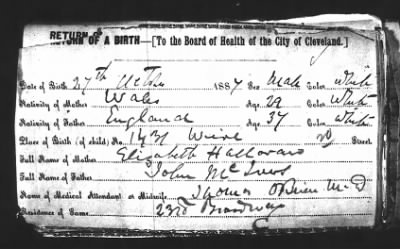 RETURN OF
RETURN OF A BIRTH—[To the Board of Health of the City of Cleveland.]
Date of Birth 27th Octbr 1887 Sex Male Color White
Nativity of Mother Wales Age 29 Color White
Nativity of Father England Age 37 Color White
Place of Birth (of child) No. Street
Full Name of Mother Elizabeth
Full Name of Father John
Name of Medical Attendant or Midwife Thomas O'Brien M.D
Residence of Same Broadway